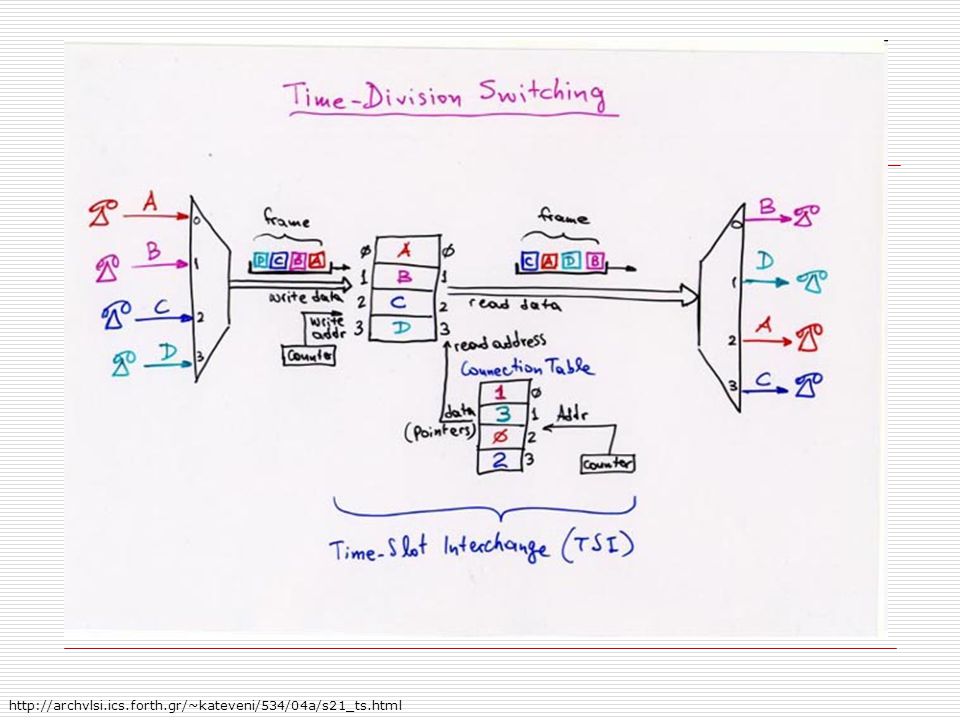 Time-Division Switching
A
B
C
D
0
1
2
3
frame
D C B A
write data
write addr
counter
Ø A Ø
1 B 1
2 C 2
3 D 3
frame
C A D B
read data
read address
Connection Table
data
(pointers)
1 Ø
3 1
Ø 2
2 3
Addr
counter
0
1
2
3
B
D
A
C
Time-Slot Interchange (TSI)
http://archvlsi.ics.forth.gr/~kateveni/534/04a/s21_ts.html